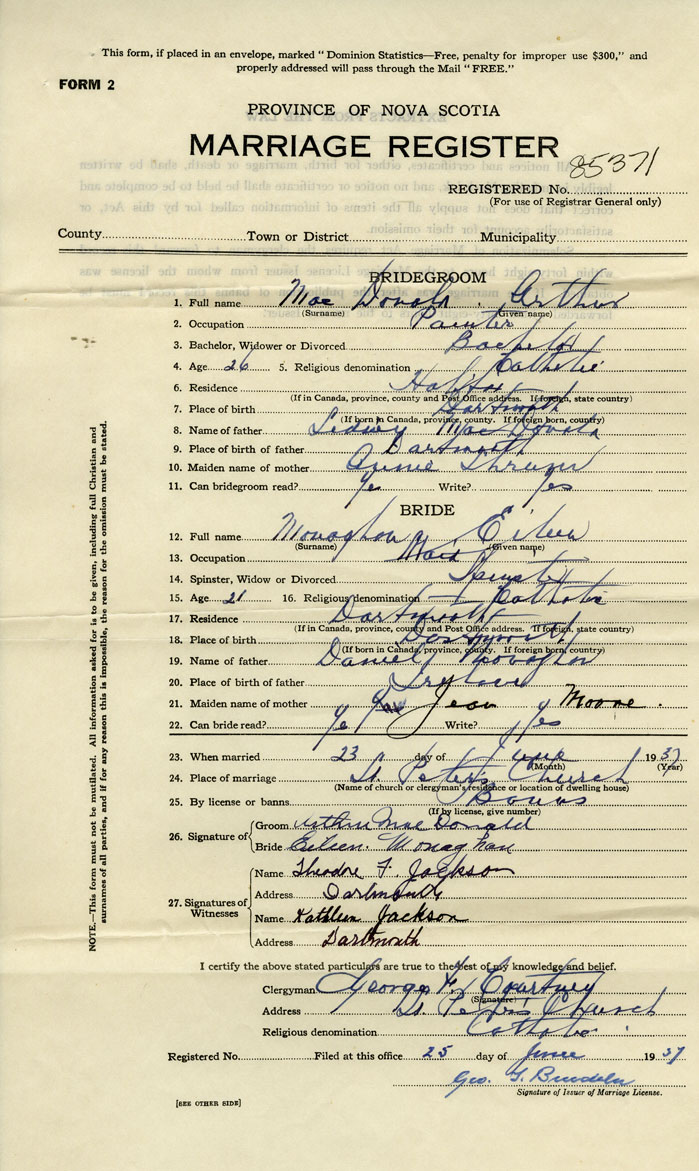 This form, if placed in an envelope, marked "Dominion Statistics—Free, penalty for improper use $300," and
properly addressed will pass through the Mail "FREE."
FORM 2
PROVINCE OF NOVA SCOTIA
MARRIAGE REGISTER
85371
REGISTERED No.
(For use of Registrar General only)
County Town or District Municipality
BRIDEGROOM
1. Full name Mac Donald Arthur
(Surname) (Given name)
2. Occupation Painter
3. Bachelor, Widower or Divorced Bachelor
4. Age 26 5. Religious denomination Catholic
6. Residence Halifax
(If in Canada, province, county and Post Office address. If foreign, state country)
7. Place of birth Dartmouth
(If born in Canada, province, county. If foreign born, country)
8. Name of father Sidney Mac Donald
9. Place of birth of father Dartmouth
10. Maiden name of mother Annie
11. Can bridegroom read? Yes Write? Yes
BRIDE
12. Full name Monaghan Eileen
(Surname) (Given name)
13. Occupation Maid
14. Spinster, Widow or Divorced Spinster
15. Age 21 16. Religious denomination Catholic
17. Residence Dartmouth
(If in Canada, province, county and Post Office address. If foreign, state country)
18. Place of birth Dartmouth
(If born in Canada, province, county. If foreign born country)
19. Name of father Daniel Monaghan
20. Place of birth of father Ireland
21. Maiden name of mother Jean Moore.
22. Can bride read? Yes Write? Yes
23. When married 23 day of June 1937
(Month) (Year)
24. Place of marriage St. Peter's Church
(Name of church or clergyman's residence or location of dwelling house)
25. By license or banns Banns
(If by license, give number)
26. Signature of
Groom Arthur MacDonald
Bride Eileen Monaghan
27. Signatures of Witnesses
Name Theodore F. Jackson
Address Dartmouth
Name Kathleen Jackson
Address Dartmouth
I certify the above stated particulars are true to the best of my knowledge and belief.
Clergyman George F. Courtney
(Signature)
Address St. Peter's Church
Religious denomination Catholic
Registered No. Filed at this office 25 day of June 1937
Geo. G.
Signature of Issuer of Marriage License.
[SEE OTHER SIDE]
NOTE.—This form must not be mutilated. All information asked for is to be given, including full Christian and
surnames of all parties, and if for any reason this is impossible, the reason for the omission must be stated.